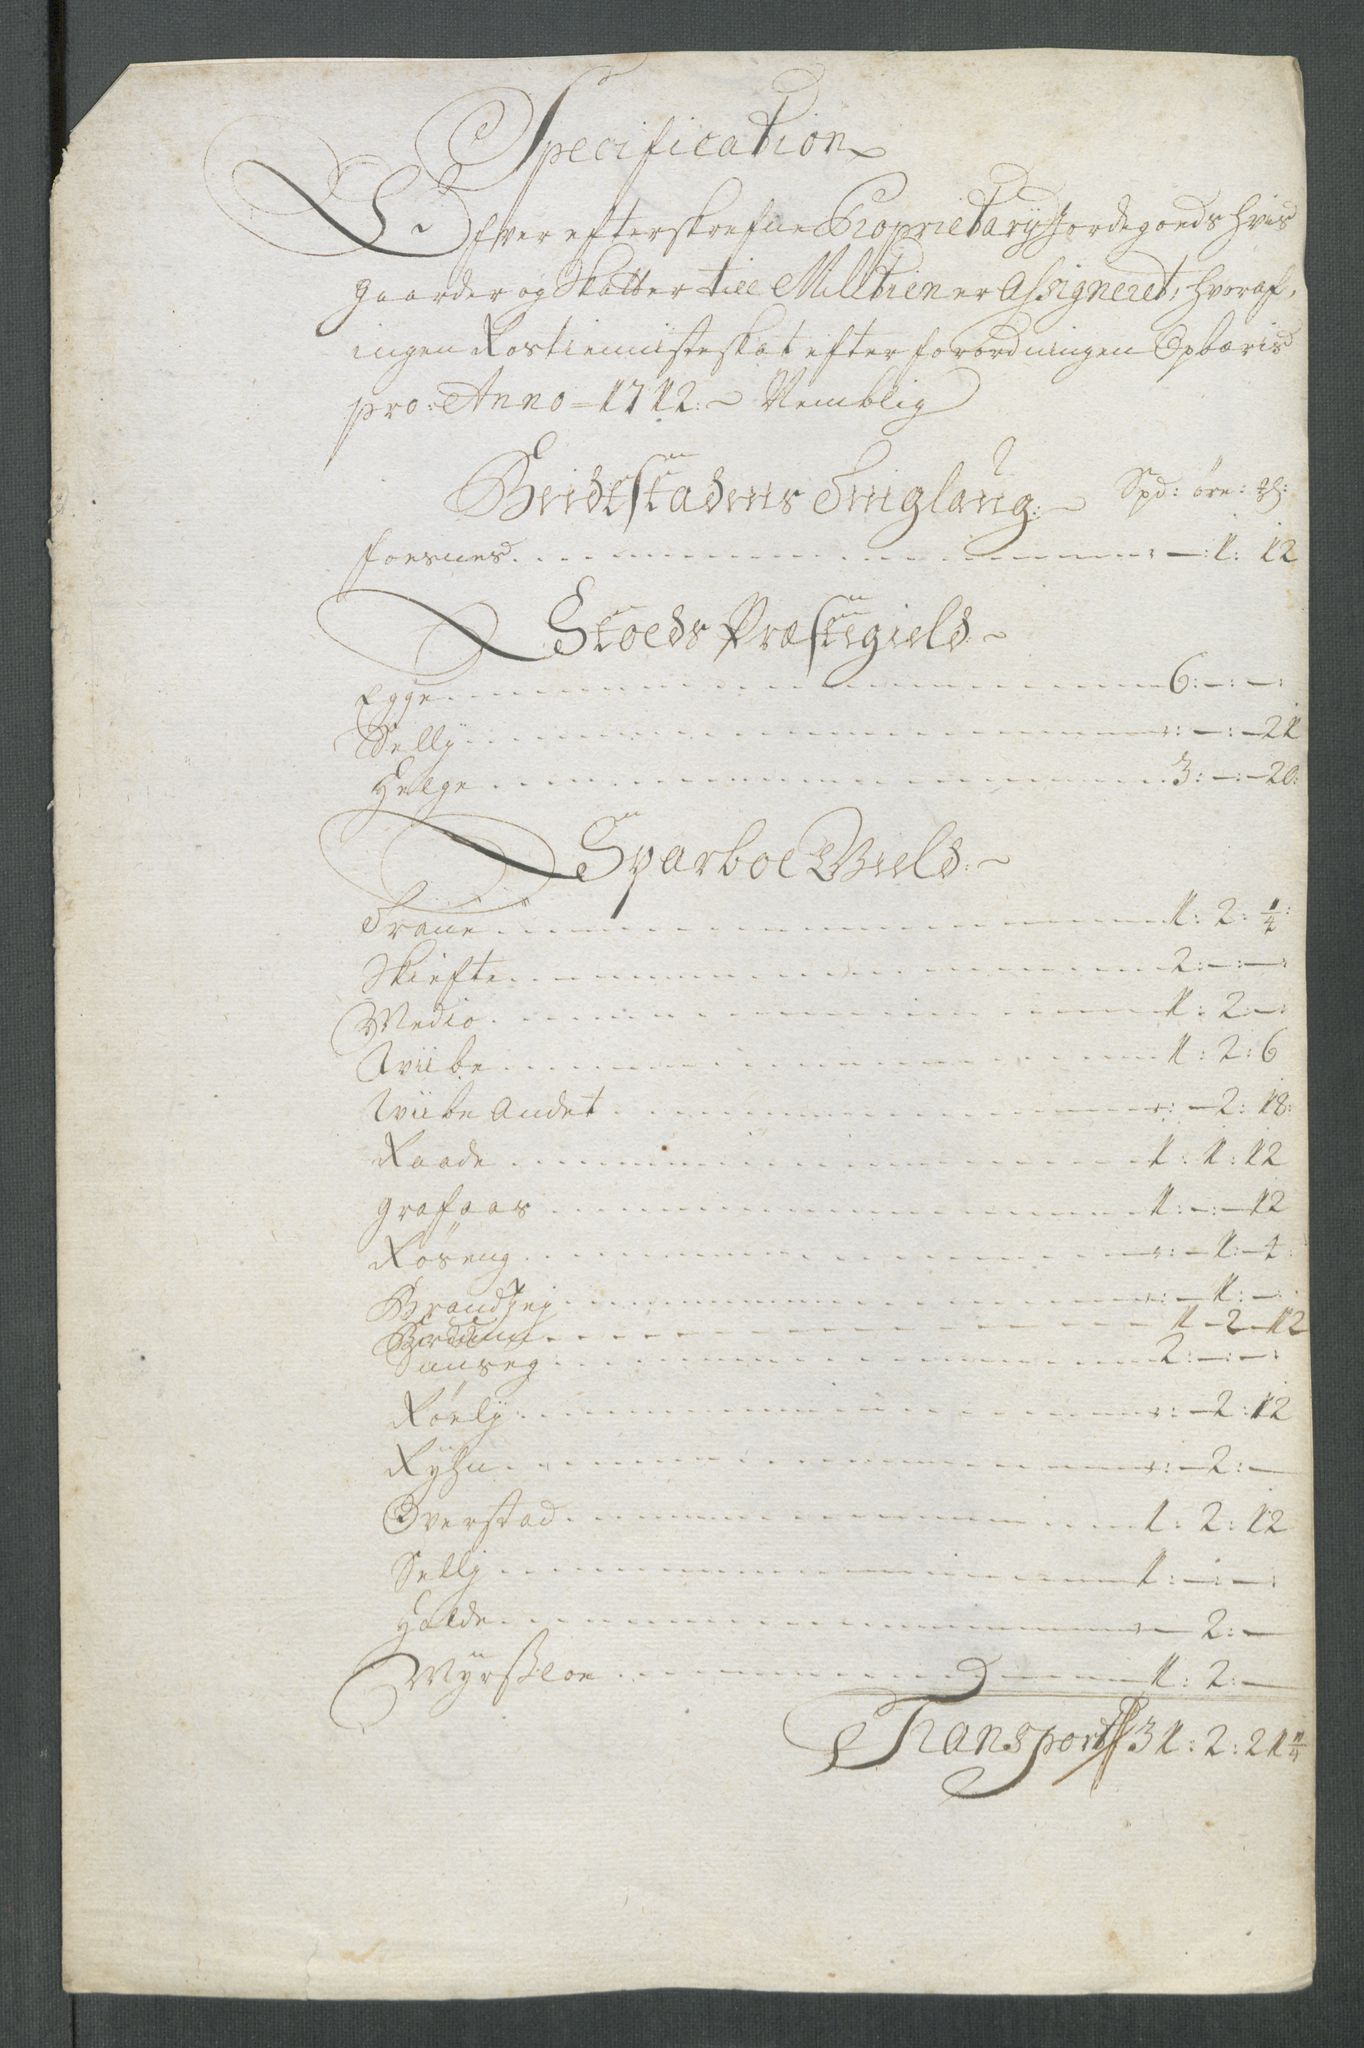 Specification
Ofver efterskrefne Proprietarij Jordegoeds hvis
gaarder og Skatter till Militien er Assigneret, hvoraf,
ingen Rostienniste skat efter forordningen Opbæris
pro: Anno = 1712: Nemblig
Beidestadens Tinglaug: Spd: öre: ₰:
foesnes - : - 1: 12
Stoeds Præstegield
Egge 6: - : - :
Selly - : - : - 21
Helge 3: - : - 20:
Sparboe Gield
Trane 1: 2: 1/4:
Skiefte 2: - : -
Wedio 1: 2: - :
Wiibe 1: 2: 6
Wiibe Andet - : - 2: 18:
Raade 1: 1: 12
grafaas 1: - : - 12
Röseng - : - 1: - 4:
Brandzeg - : - 1: - :
1 - 2 - 12
Sunseg 2: - : - :
Röely - : - 2: 12
Ryhn - : - 2: -
Overstad 1: 2: 12
Selly 1: - : - :
Halde - : - 2: -
Myrsloe 1: 2: -
Transport 31: 2: 21 1/4